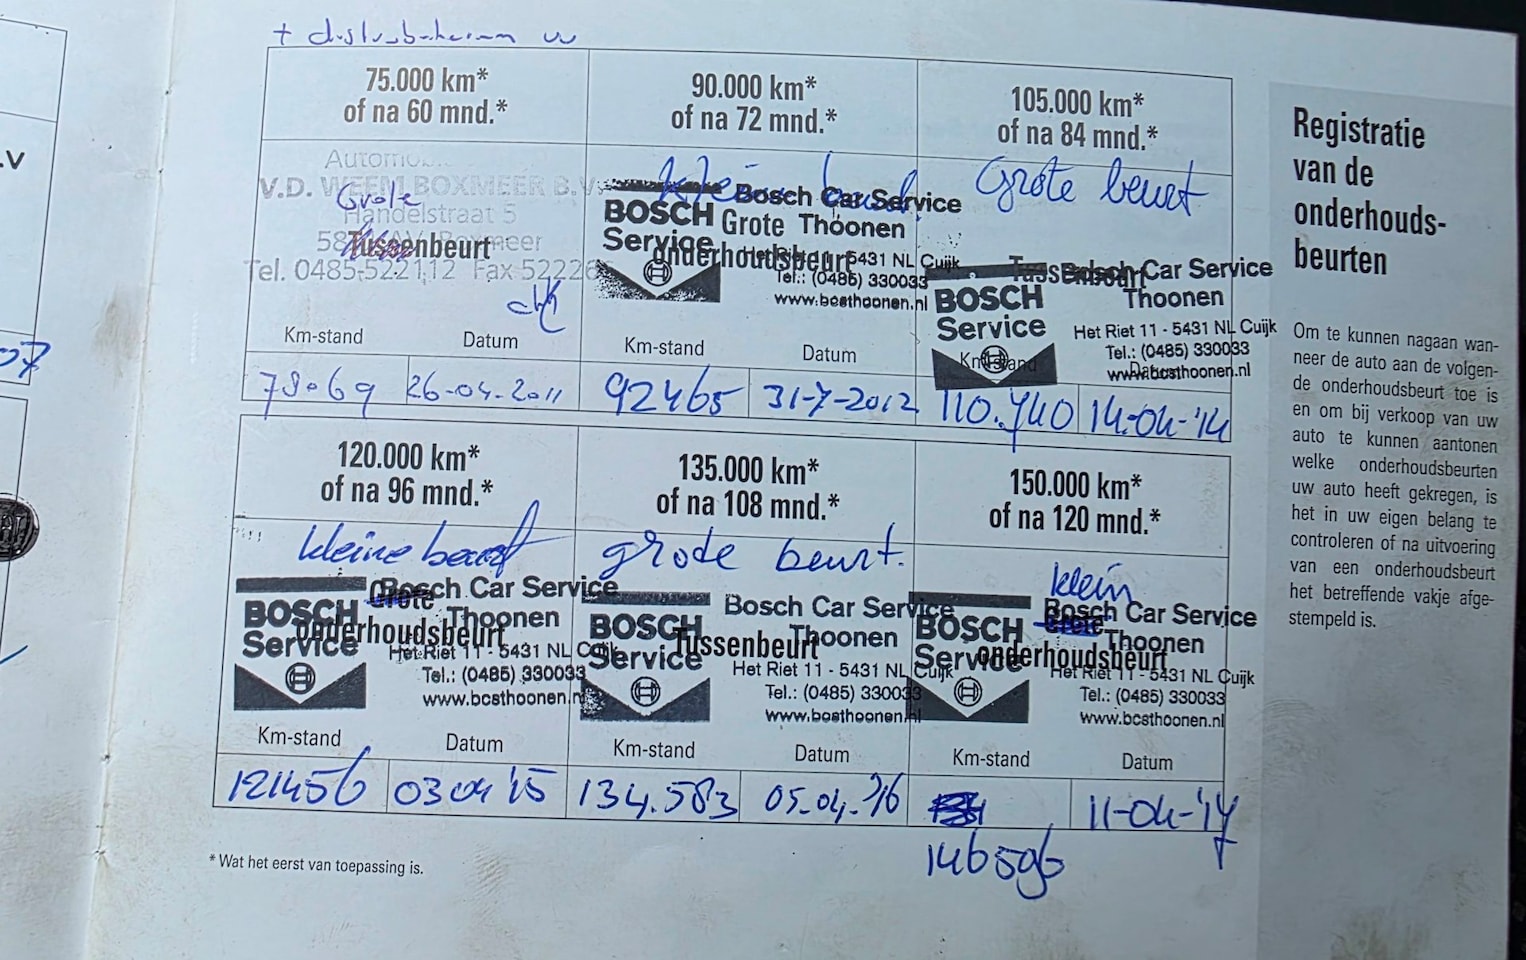 .V
07
+ distributieriem vv
75.000 km*
of na 60 mnd.*
Automobielbedrijf
V.D. WEEM BOXMEER B.V.
Handelstraat 5
Boxmeer
Tel. 0485-522112 Fax 522265
Grote
Tussenbeurt
Km-stand
Datum
78069
26-04-2011
90.000 km*
of na 72 mnd.*
kleine beurt
BOSCH
Service
Bosch Car Service
Thoonen
Het Riet 11 - 5431 NL Cuijk
Tel.: (0485) 330033
www.bcsthoonen.nl
Grote
onderhoudsbeurt
Km-stand
Datum
92465
31-7-2012
105.000 km*
of na 84 mnd.*
Grote beurt
BOSCH
Service
Bosch Car Service
Thoonen
Het Riet 11 - 5431 NL Cuijk
Tel.: (0485) 330033
www.bcsthoonen.nl
Tussenbeurt
Km-stand
Datum
110.740
14-04-'14
120.000 km*
of na 96 mnd.*
kleine beurt
BOSCH
Service
Bosch Car Service
Thoonen
Het Riet 11 - 5431 NL Cuijk
Tel.: (0485) 330033
www.bcsthoonen.nl
Grote
onderhoudsbeurt
Km-stand
Datum
121456
03 04 '15
135.000 km*
of na 108 mnd.*
grode beurt.
BOSCH
Service
Bosch Car Service
Thoonen
Het Riet 11 - 5431 NL Cuijk
Tel.: (0485) 330033
www.bcsthoonen.nl
Tussenbeurt
Km-stand
Datum
134.583
05.04.'16
150.000 km*
of na 120 mnd.*
klein
BOSCH
Service
Bosch Car Service
Thoonen
Het Riet 11 - 5431 NL Cuijk
Tel.: (0485) 330033
www.bcsthoonen.nl
Grote
onderhoudsbeurt
Km-stand
Datum
11-04-'17
146596
* Wat het eerst van toepassing is.
Registratie
van de
onderhouds-
beurten
Om te kunnen nagaan wan-
neer de auto aan de volgen-
de onderhoudsbeurt toe is
en om bij verkoop van uw
auto te kunnen aantonen
welke onderhoudsbeurten
uw auto heeft gekregen, is
het in uw eigen belang te
controleren of na uitvoering
van een onderhoudsbeurt
het betreffende vakje afge-
stempeld is.